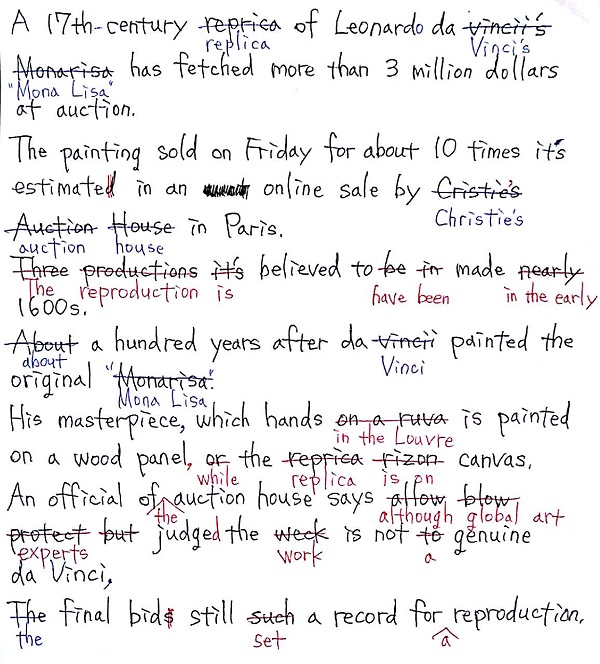 A 17th-century reprica of Leonardo da vincii's
replica Vinci's
Monarisa has fetched more than 3 million dollars
"Mona Lisa"
at auction.
The painting sold on Friday for about 10 times it's
estimated in an online sale by Cristie's
Christie's
Auction House in Paris.
auction house
Three productions it's believed to be in made nearly
The reproduction is have been in the early
1600s.
About a hundred years after da vincii painted the
about Vinci
original "Monarisa".
Mona Lisa
His masterpiece, which hands on a ruva is painted
in the Louvre
on a wood panel, or the reprica rizon canvas.
while replica is on
An official of auction house says allow blow
the although global art
protect but judged the week is not to genuine
experts work a
da Vinci,
The final bids still such a record for reproduction.
the set a